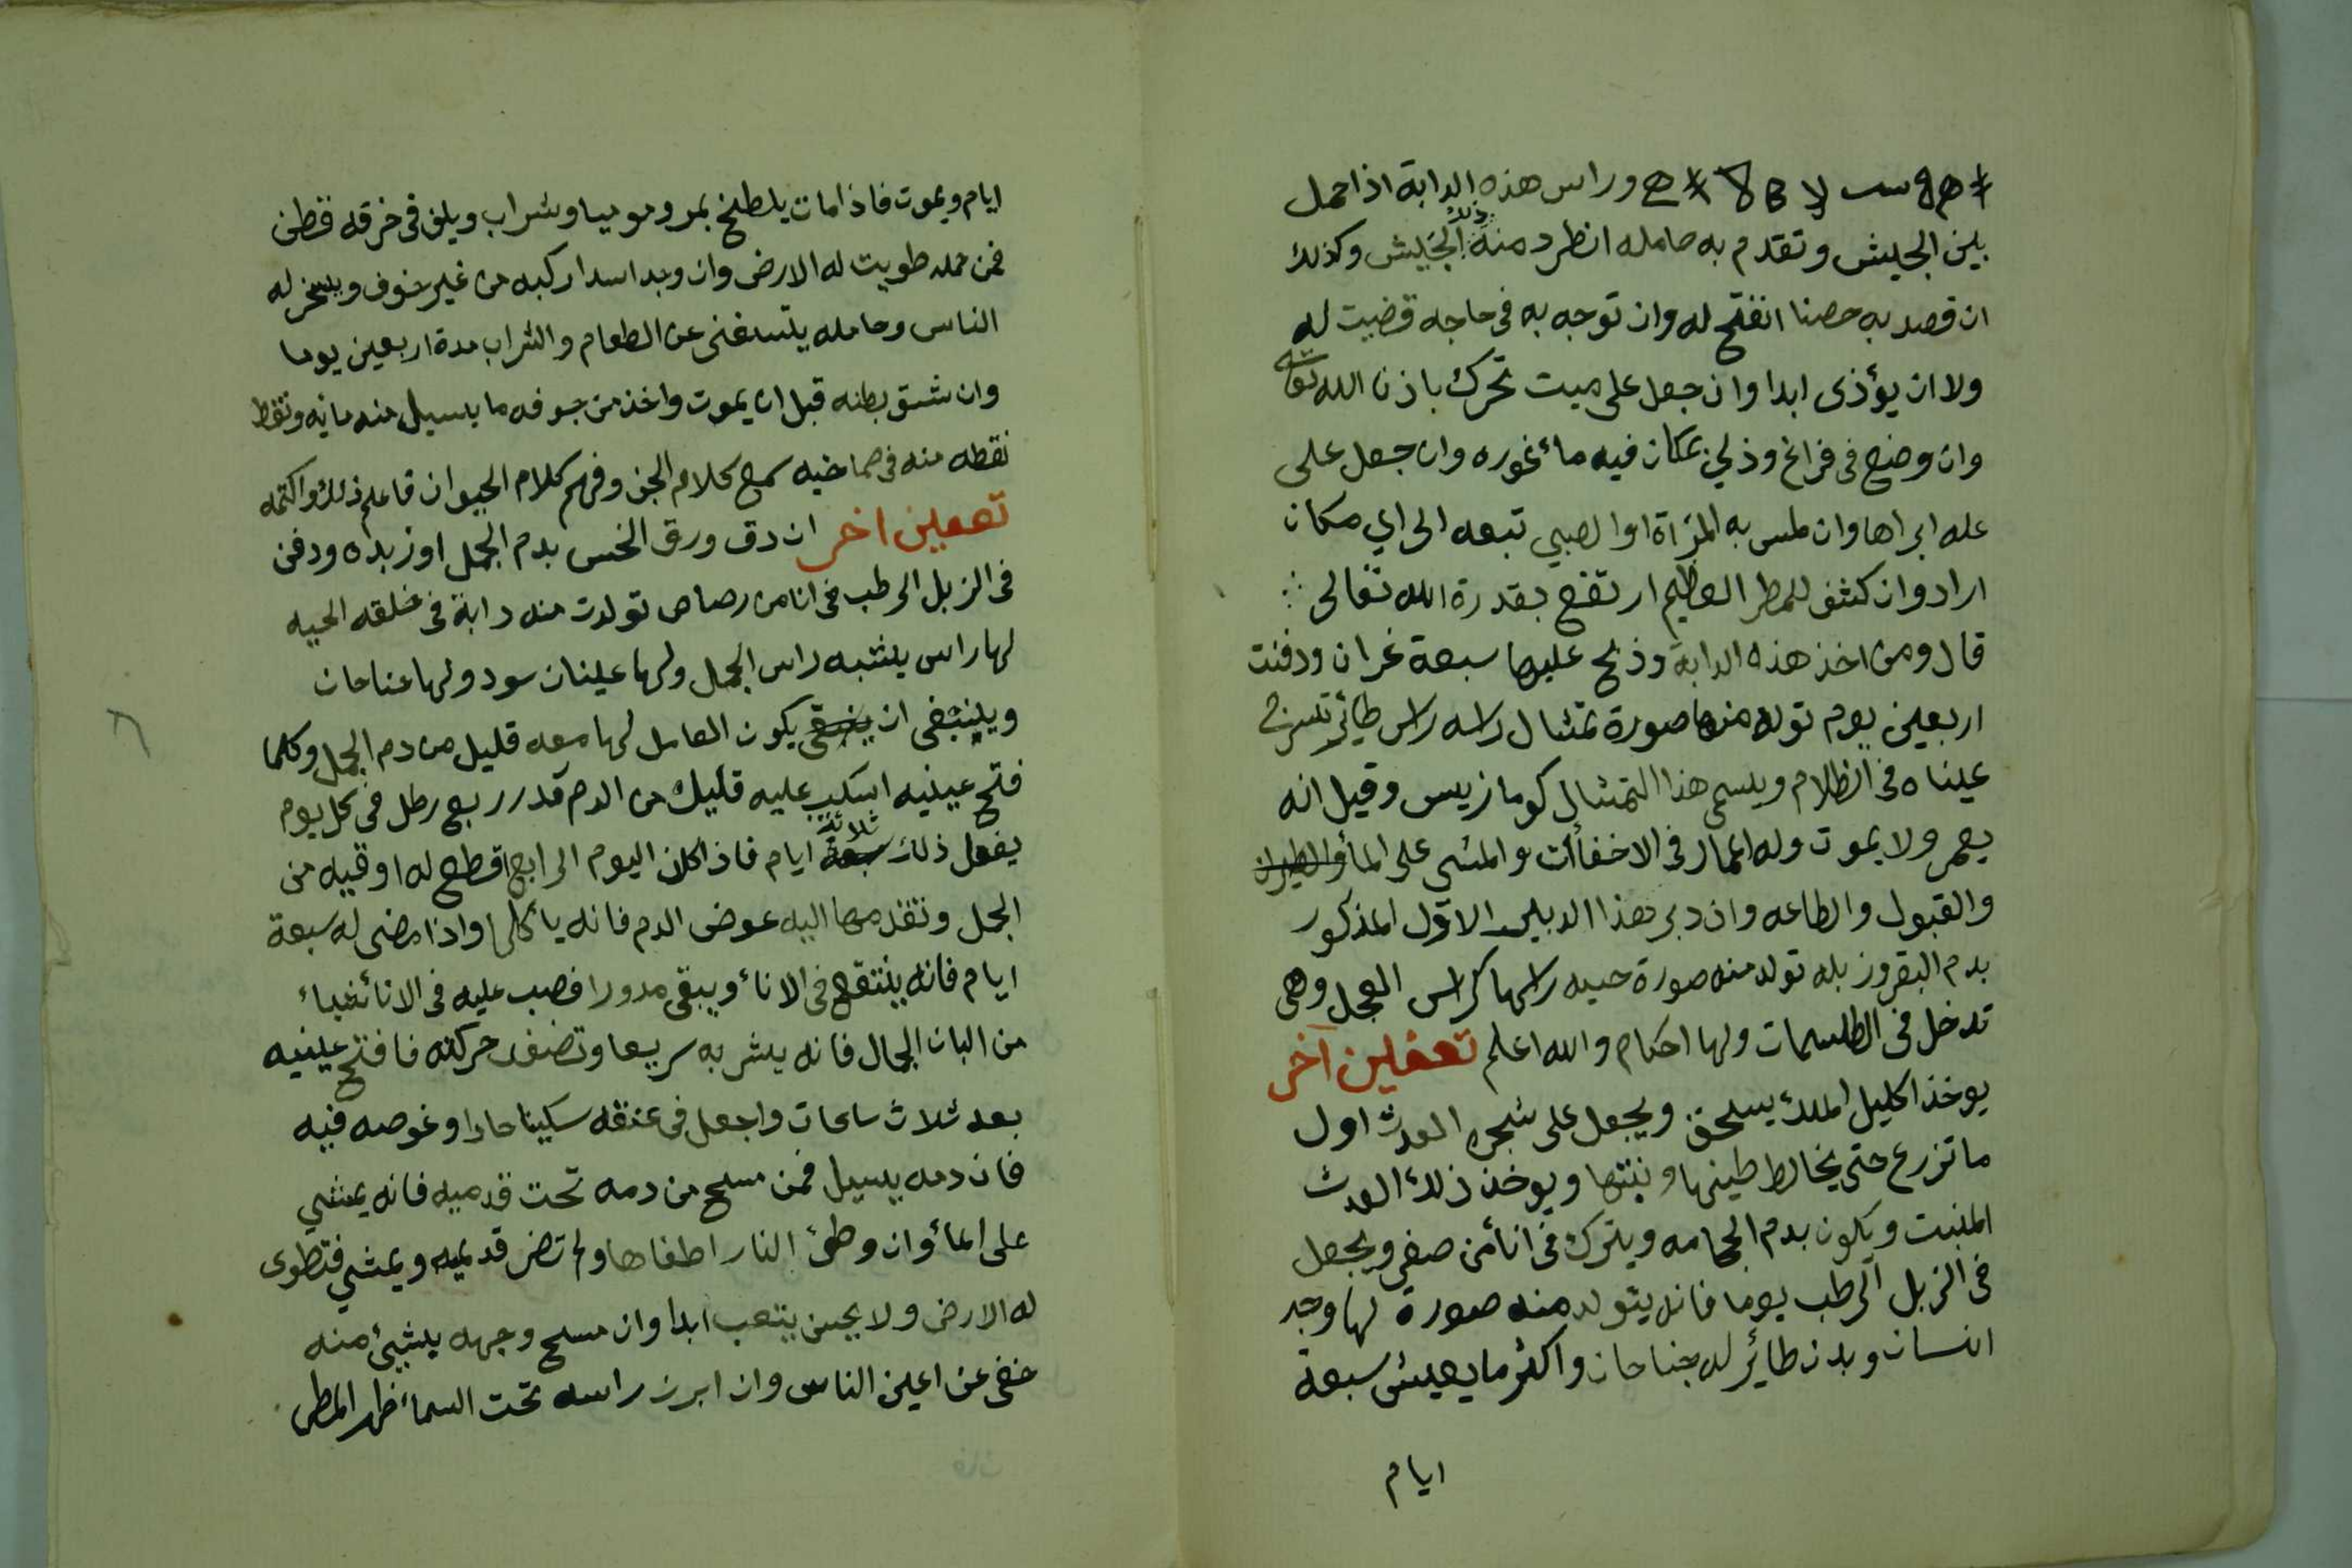 وراس هذه الدابة اذا حمل
بين الجيش وتقدم به حامله انطرد منه ذلك الجيش وكذلك
ان قصد به حصنا انفتح له وان توجه به فى حاجه قضيت له
ولا ان يؤذى ابدا وان جعل على ميت تحرك باذن الله تعالى
وان وضع فى فراغ وذلي بمكان فيه ماء غوره وان جعل على
عله ابراها وان لمس به المرأة او الصبي تبعه الى اي مكان
اراد وان كشف للمطر العظيم ارتفع بقدرة الله تعالى
قال ومن اخذ هذه الدابة وذبح عليها سبعة غران ودفنت
اربعين يوم تولد منها صورة تمثال راسه راس طائر تسرج
عيناه فى الظلام ويسمى هذا التمثال كومازيس وقيل انه
يعمر ولا يموت وله اعمال فى الاخفاأت والمشي على الماء والطيران
والقبول والطاعه وان دبر هذا الدبير الاول المذكور
بدم البقر وزبله تولد منه صورة حيه راسها كراس العجل وهى
تدخل فى الطلسمات ولها احكام والله اعلم تعفين آخر
يوخذ اكليل الملك يسحق ويجعل على شجره العدث اول
ما تزرع حتى يخالط طينها ونبتها ويوخذ ذلك العدث
المنبت ويكون بدم الحجامه ويترك فى اناء من صفر ويجعل
فى الزبل الرطب يوما فانه يتولد منه صورة لها وجه
انسان وبدن طائر له جناحان واكثر ما يعيش سبعة
ايام
ايام ويموت فاذا مات يلطخ بمر وموميا وشراب ويلف فى خرقه قطن
فمن حمله طويت له الارض وان وجد اسدا ركبه من غير خوف ويسخر له
الناس وحامله يستغنى عن الطعام والشراب مدة اربعين يوما
وان شق بطنه قبل ان يموت واخذ من جوفه ما يسيل منه مائه ونقط
نقطه منه فى صماخيه سمع كلام الجن وفهم كلام الحيوان فاعلم ذلك واكتمه
تعفين اخر ان دق ورق الخس بدم الجمل او زبداه ودفن
فى الزبل الرطب فى انا من رصاص تولدت منه دابة فى خلقه الحيه
لها راس يشبه راس الجمل ولها عينان سود ولها جناحان
وينبغى ان يبقى يكون العامل لها معه قليل من دم الجمل وكلما
فتح عينيه اسكب عليه قليل من الدم قدر ربع رطل فى كل يوم
يفعل ذلك سبعة ثلاثة ايام فاذا كان اليوم الرابع اقطع له اوقيه من
الجمل وتقدمها اليه عوض الدم فانه ياكلها واذا مضى له سبعة
ايام فانه ينتفخ فى الاناء ويبقى مدورا فصب عليه فى الاناء شياء
من البان الجمال فانه يشربه سريعا وتضعف حركته فافتح عينيه
بعد ثلاث ساعات واجعل فى عنقه سكينا حادا وغوصه فيه
فان دمه يسيل فمن مسح من دمه تحت قدميه فانه يمشي
على الماء وان وطئ النار اطفاها ولم تضر قدميه ويمشي فتطوى
له الارض ولا يحس بتعب ابدا وان مسح وجهه بشيئ منه
خفى عن اعين الناس وان ابرز راسه تحت السماء ظهر المطر